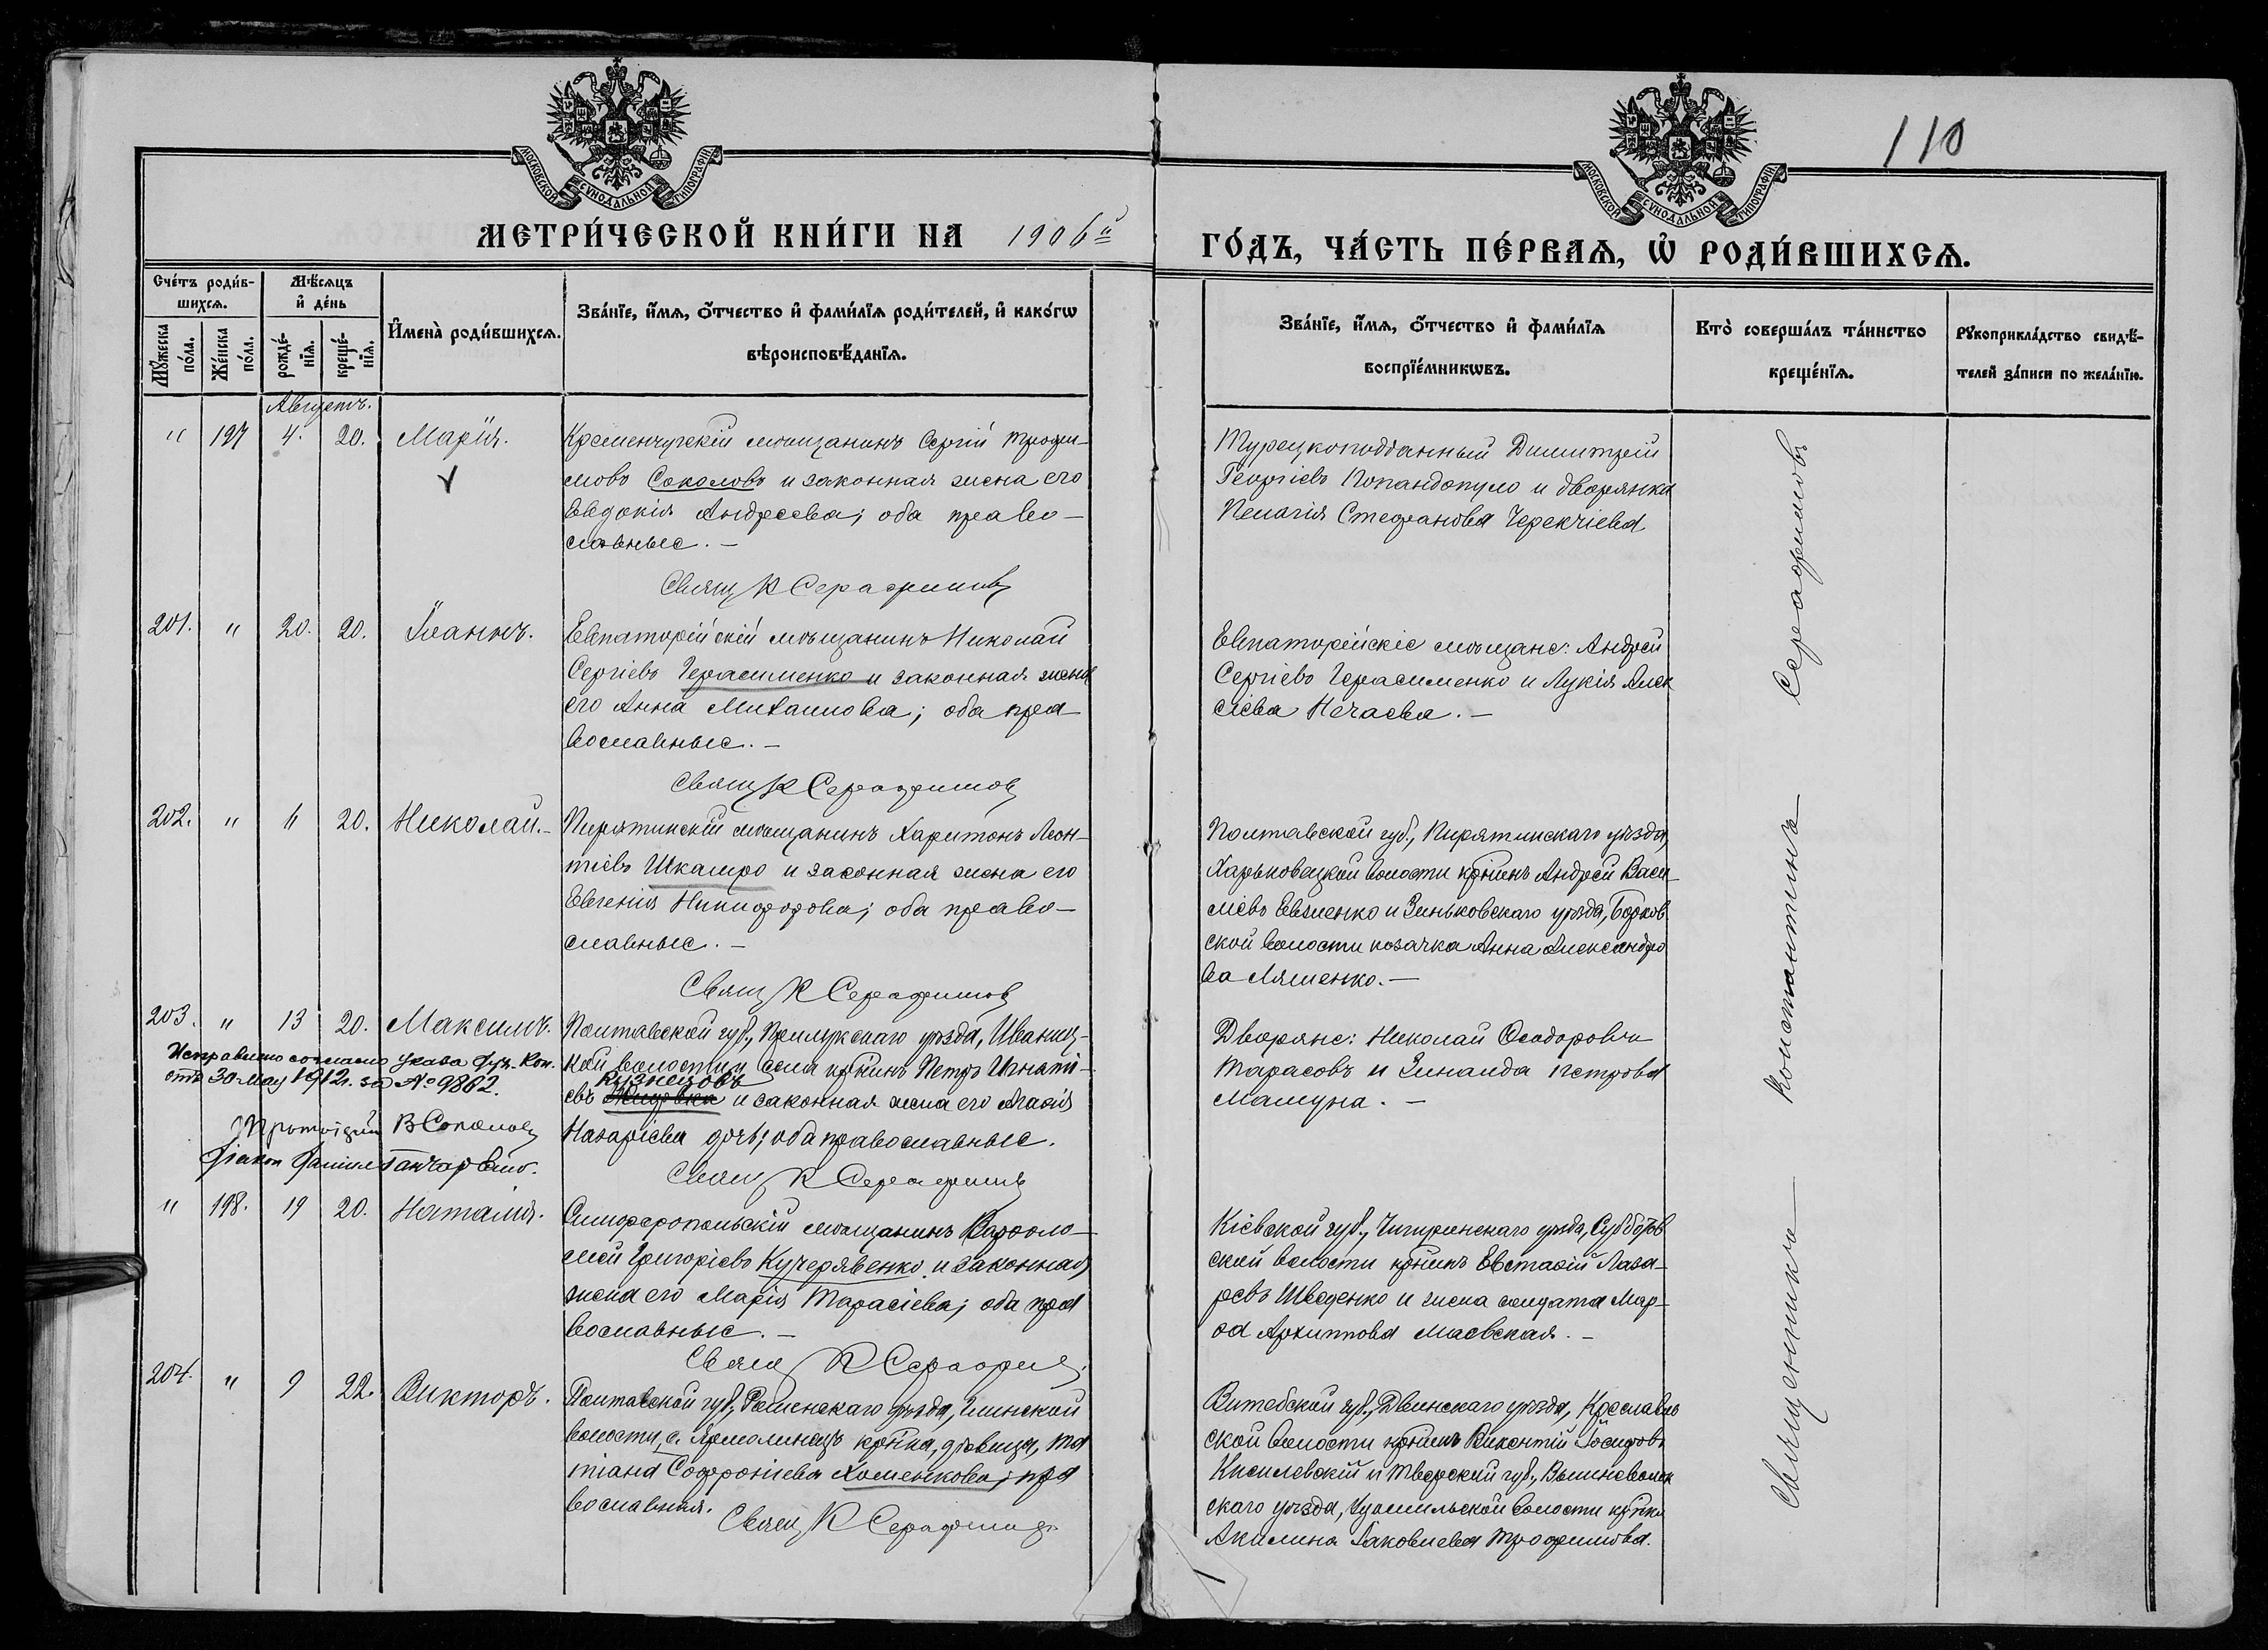 110
МОСКОВСКОЙ СѴНОДАЛЬНОЙ ТИПОГРАФІИ
МОСКОВСКОЙ СѴНОДАЛЬНОЙ ТИПОГРАФІИ
МЕТРИ́ЧЕСКОЙ КНИ́ГИ НА 1906й
ГО́ДЪ, ЧА́СТЬ ПЕ́РВАѦ, Ѡ҆ РОДИ́ВШИХСѦ.
Сче́тъ роди́в-
шихсѧ.
Мѣ́сѧцъ
и҆ де́нь
Мꙋ́жеска
по́ла.
Же́нска
по́ла.
рожде́-
нїѧ.
креще́-
нїѧ.
И҆мена̀ роди́вшихсѧ.
Зва́нїе, и҆́мѧ, ѻ҆́тчество и҆ фами́лїѧ роди́телей, и҆ како́гѡ
вѣроисповѣ́данїѧ.
Зва́нїе, и҆́мѧ, ѻ҆́тчество и҆ фами́лїѧ
воспрїе́мникѡвъ.
Кто̀ соверша́лъ та́инство
креще́нїѧ.
Рꙋкоприкла́дство свидѣ́-
телей за́писи по жела́нїю.
Августъ.
" 197 4. 20. Марія.
Кременчугскій мѣщанинъ Сергій Трофи-
мовъ Соколовъ и законная жена его
Евдокія Андреева; оба право-
славные. —
Свящ К Серафимовъ
Турецкоподданный Димитрій
Георгіевъ Попандопуло и дворянка
Пелагія Стефанова Черекчіева
201. " 20. 20. Іоаннъ.
Евпаторійскій мѣщанинъ Николай
Сергіевъ Герасименко и законная жена
его Анна Михаилова; оба пра
вославные. —
Свящ К Серафимовъ
Евпаторійскіе мѣщане: Андрей
Сергіевъ Герасименко и Лукія Алек
сіева Нечаева. —
202. " 11 20. Николай. —
Пирятинскій мѣщанинъ Харитонъ Леон-
тіевъ Шкамро и законная жена его
Евгенія Никифорова; оба право-
славные. —
Свящ К Серафимовъ
Полтавской губ., Пирятинскаго уѣзда,
Харьковецкой волости кр̃нинъ Андрей Васи-
ліевъ Евзиенко и Зиньковскаго уѣзда, Борков
ской волости козачка Анна Александро
ва Ляшенко. —
203. " 13 20. Максимъ.
Полтавской губ., Прилукскаго уѣзда, Иваниц-
кой волости и села кр̃нинъ Петръ Игнаті-
Кузнецовъ
евъ и законная жена его Агафія
Назаріева дочь; оба православные.
Свящ К Серафимовъ
Исправлено согласно указа Дух. Кон.
отъ 30 мау 1912 г. за № 9862.
Протоіерей В Соколовъ
Діакон Даниил Гончаревич.
Дворяне: Николай Ѳеодоровъ
Тарасовъ и Зинаида Петрова
Машура. —
" 198. 19 20. Наталія.
Симферопольскій мѣщанинъ Варѳоло-
мей Григоріевъ Кучерявенко и законная
жена его Марія Тарасіева; оба пра
вославные. —
Свящ К Серафим
Кіевской губ., Чигиринскаго уѣзда, Субботов
ской волости кр̃нинъ Евстафій Лаза-
ревъ Шведенко и жена солдата Мар-
ѳа Архиппова Маевская. —
204. " 9 22. Викторъ.
Полтавской губ., Роменскаго уѣзда, Глинской
волости, с. Ярмолинецъ кр̃нка, дѣвица, Та
тіана Софроніева Хоменкова; пра
вославная.
Свящ К Серафимовъ
Витебской губ., Двинскаго уѣзда, Креславль
ской волости кр̃нинъ Викентій Іосифовъ
Кисилевскій и Тверской губ., Вышневолоц
скаго уѣзда, Удомельской волости кр̃нка
Акилина Іаковлева Трофимова.
Священникъ — Константинъ — Серафимовъ